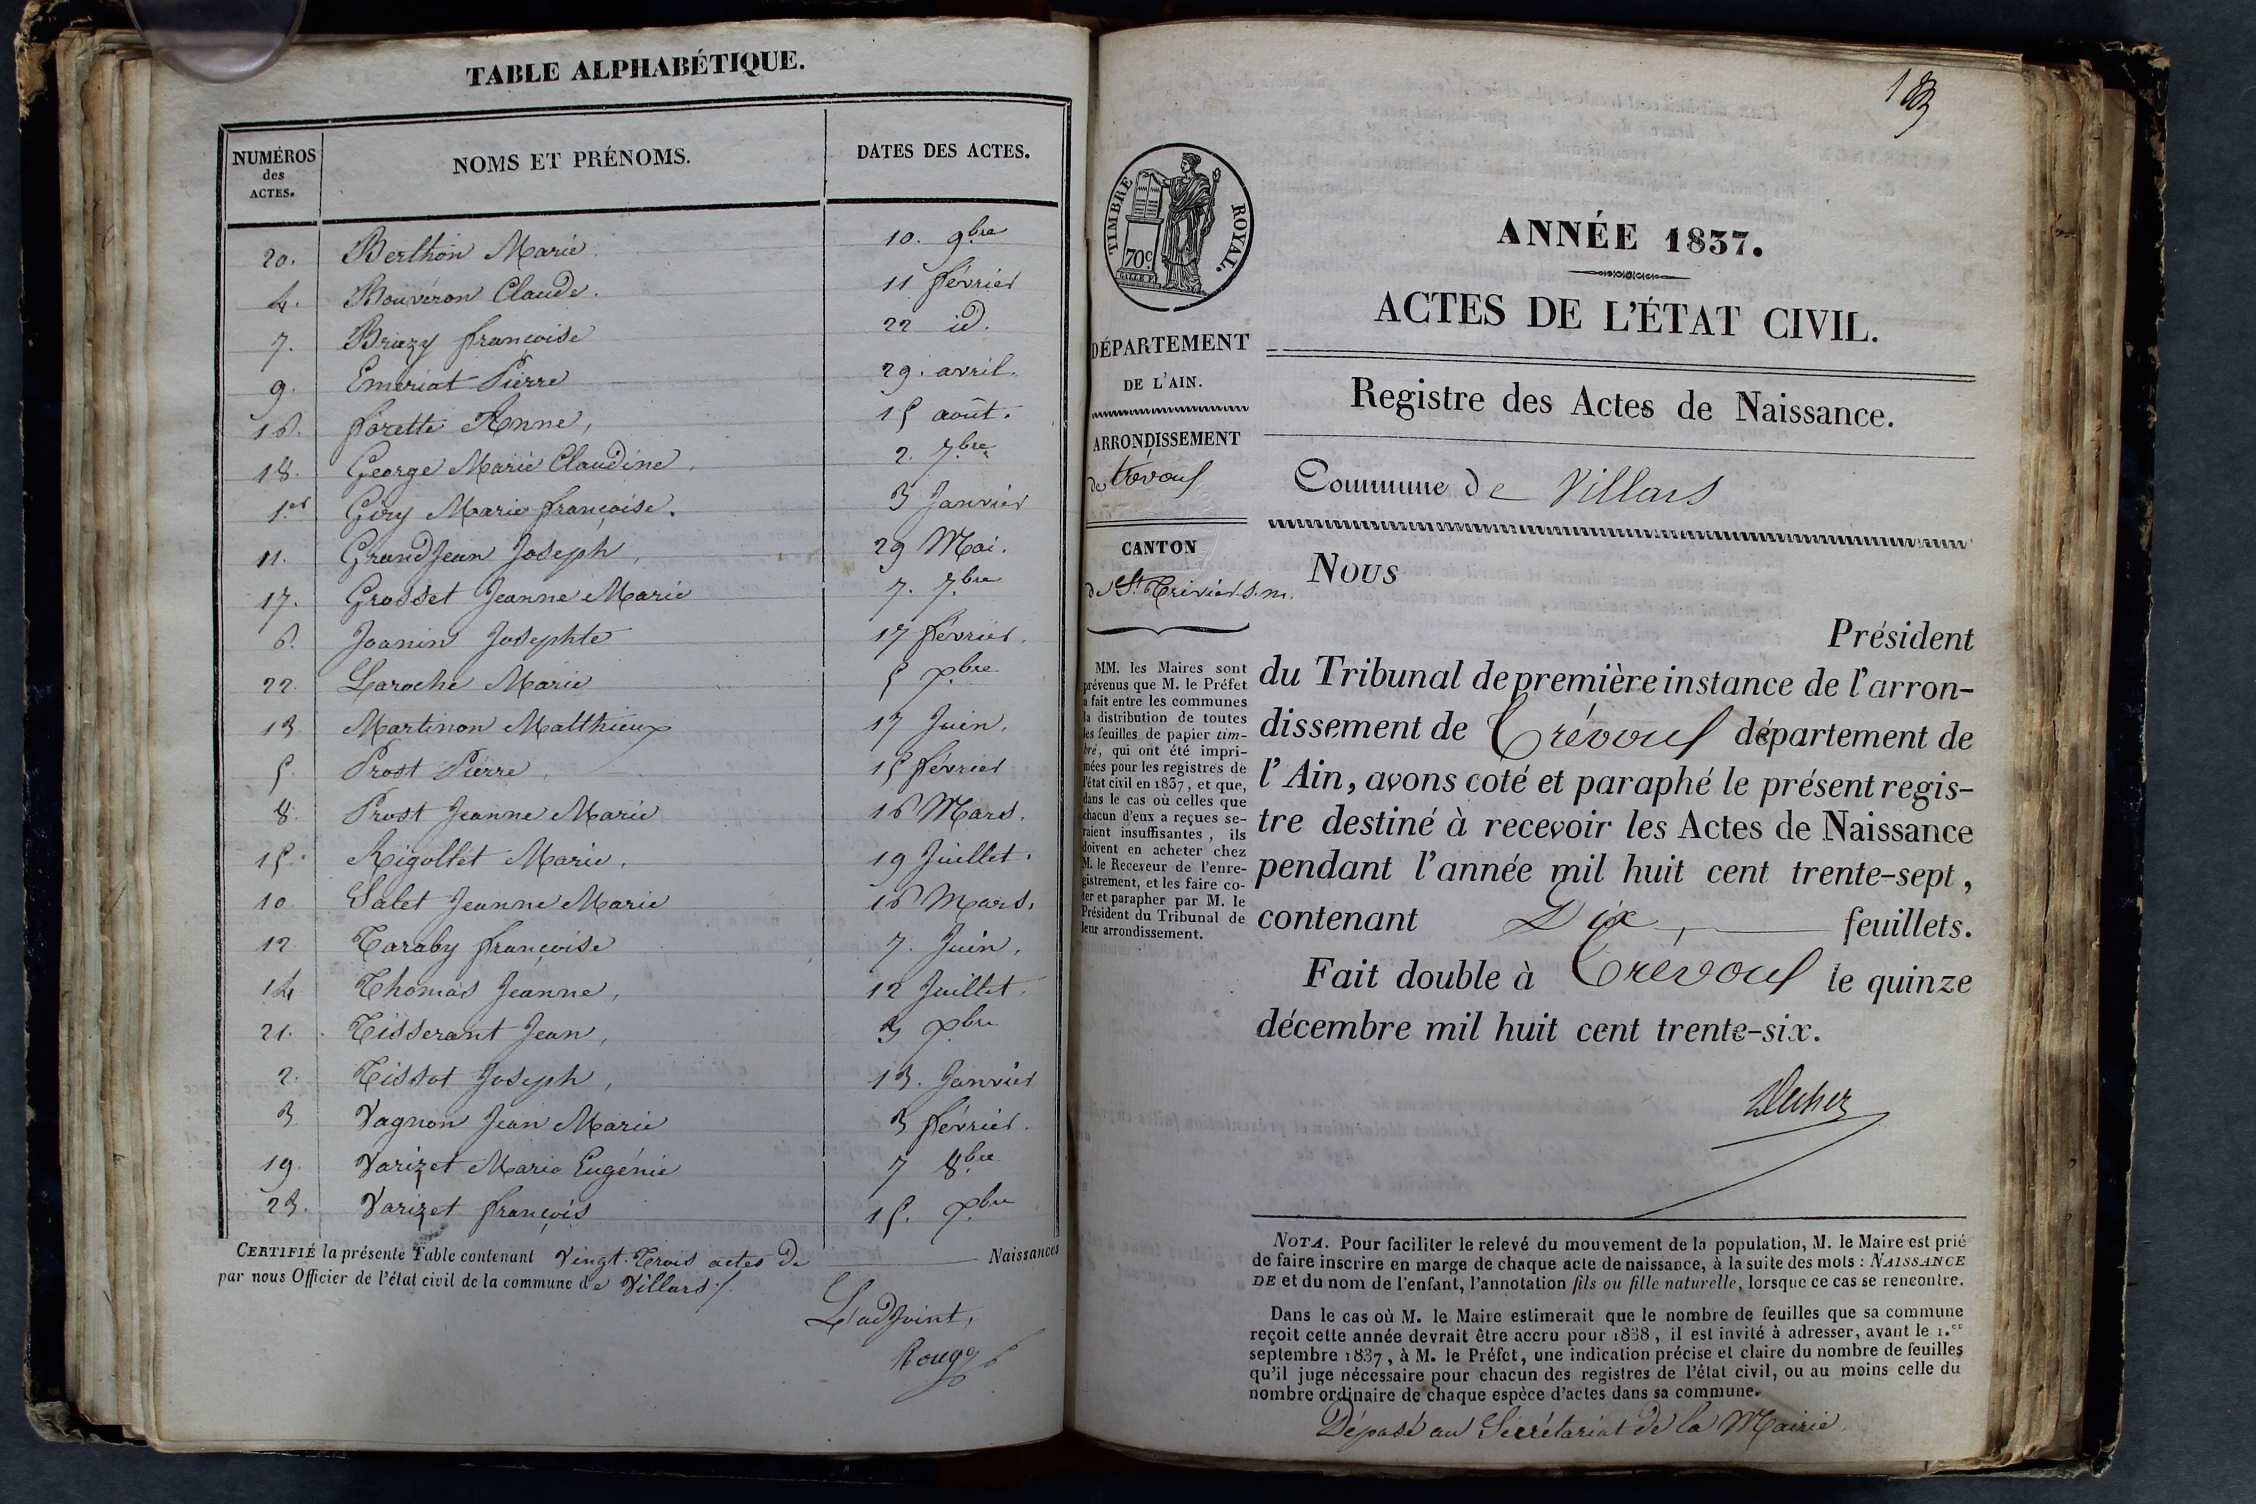 TABLE ALPHABÉTIQUE.
NUMÉROS des ACTES. NOMS ET PRÉNOMS. DATES DES ACTES.
20. Berthon Marie 10. 9bre
4. Bouveron Claude. 11 février
7. Briezy françoise 22 id.
9. Emeriat Pierre 29. avril.
16. forette Anne, 15 août.
18. George Marie Claudine, 2. 7bre
1er Giry Marie françoise. 3 Janvier
11. GrandJean Joseph, 29 Mai.
17. Grosset Jeanne Marie 7. 7bre
6. Joanin Josephte 17 février.
22. Laroche Marie 5 Xbre
13. Martinon Matthieux 17 Juin.
5. Prost Pierre, 15 février
8. Prost Jeanne Marie 16 Mars.
15. Rigollet Marie. 19 Juillet.
10 Salet Jeanne Marie 16 Mars.
12 Taraby françoise 7. Juin.
14 Thomas Jeanne, 12 Juillet.
21. Tisserant Jean, 3 Xbre
2. Tissot Joseph, 13. Janvier
3 Vagnon Jean Marie 3 février.
19. Varizet Marie Eugénie 7 8bre
23. Varizet françois 15. Xbre
CERTIFIÉ la présente Table contenant Vingt-Trois actes de Naissances
par nous Officier de l'état civil de la commune de Villars.
L'adjoint,
Rougg
183
TIMBRE ROYAL.
70c
ANNÉE 1837.
ACTES DE L'ÉTAT CIVIL.
DÉPARTEMENT
DE L'AIN.
ARRONDISSEMENT
de trévoux
CANTON
de St Trivier s. m.
MM. les Maires sont
prévenus que M. le Préfet
a fait entre les communes
la distribution de toutes
les feuilles de papier tim-
bré, qui ont été impri-
mées pour les registres de
l'état civil en 1837, et que,
dans le cas où celles que
chacun d'eux a reçues se-
raient insuffisantes, ils
doivent en acheter chez
M. le Receveur de l'enre-
gistrement, et les faire co-
ter et parapher par M. le
Président du Tribunal de
leur arrondissement.
Registre des Actes de Naissance.
Commune de Villars
Nous
Président
du Tribunal de première instance de l'arron-
dissement de Trévoux département de
l'Ain, avons coté et paraphé le présent regis-
tre destiné à recevoir les Actes de Naissance
pendant l'année mil huit cent trente-sept,
contenant Dix feuillets.
Fait double à Trévoux le quinze
décembre mil huit cent trente-six.
NOTA. Pour faciliter le relevé du mouvement de la population, M. le Maire est prié
de faire inscrire en marge de chaque acte de naissance, à la suite des mots : NAISSANCE
DE et du nom de l'enfant, l'annotation fils ou fille naturelle, lorsque ce cas se rencontre.
Dans le cas où M. le Maire estimerait que le nombre de feuilles que sa commune
reçoit cette année devrait être accru pour 1838, il est invité à adresser, avant le 1.er
septembre 1837, à M. le Préfet, une indication précise et claire du nombre de feuilles
qu'il juge nécessaire pour chacun des registres de l'état civil, ou au moins celle du
nombre ordinaire de chaque espèce d'actes dans sa commune.
Déposé au Secrétariat de la Mairie